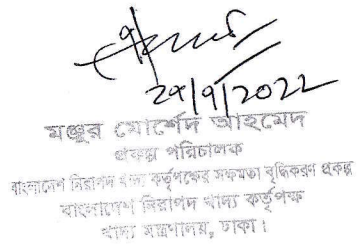 29/9/2022
মঞ্জুর মোর্শেদ আহমেদ
প্রকল্প পরিচালক
বাংলাদেশ নিরাপদ খাদ্য কর্তৃপক্ষের সক্ষমতা বৃদ্ধিকরণ প্রকল্প
বাংলাদেশ নিরাপদ খাদ্য কর্তৃপক্ষ
খাদ্য মন্ত্রণালয়, ঢাকা।